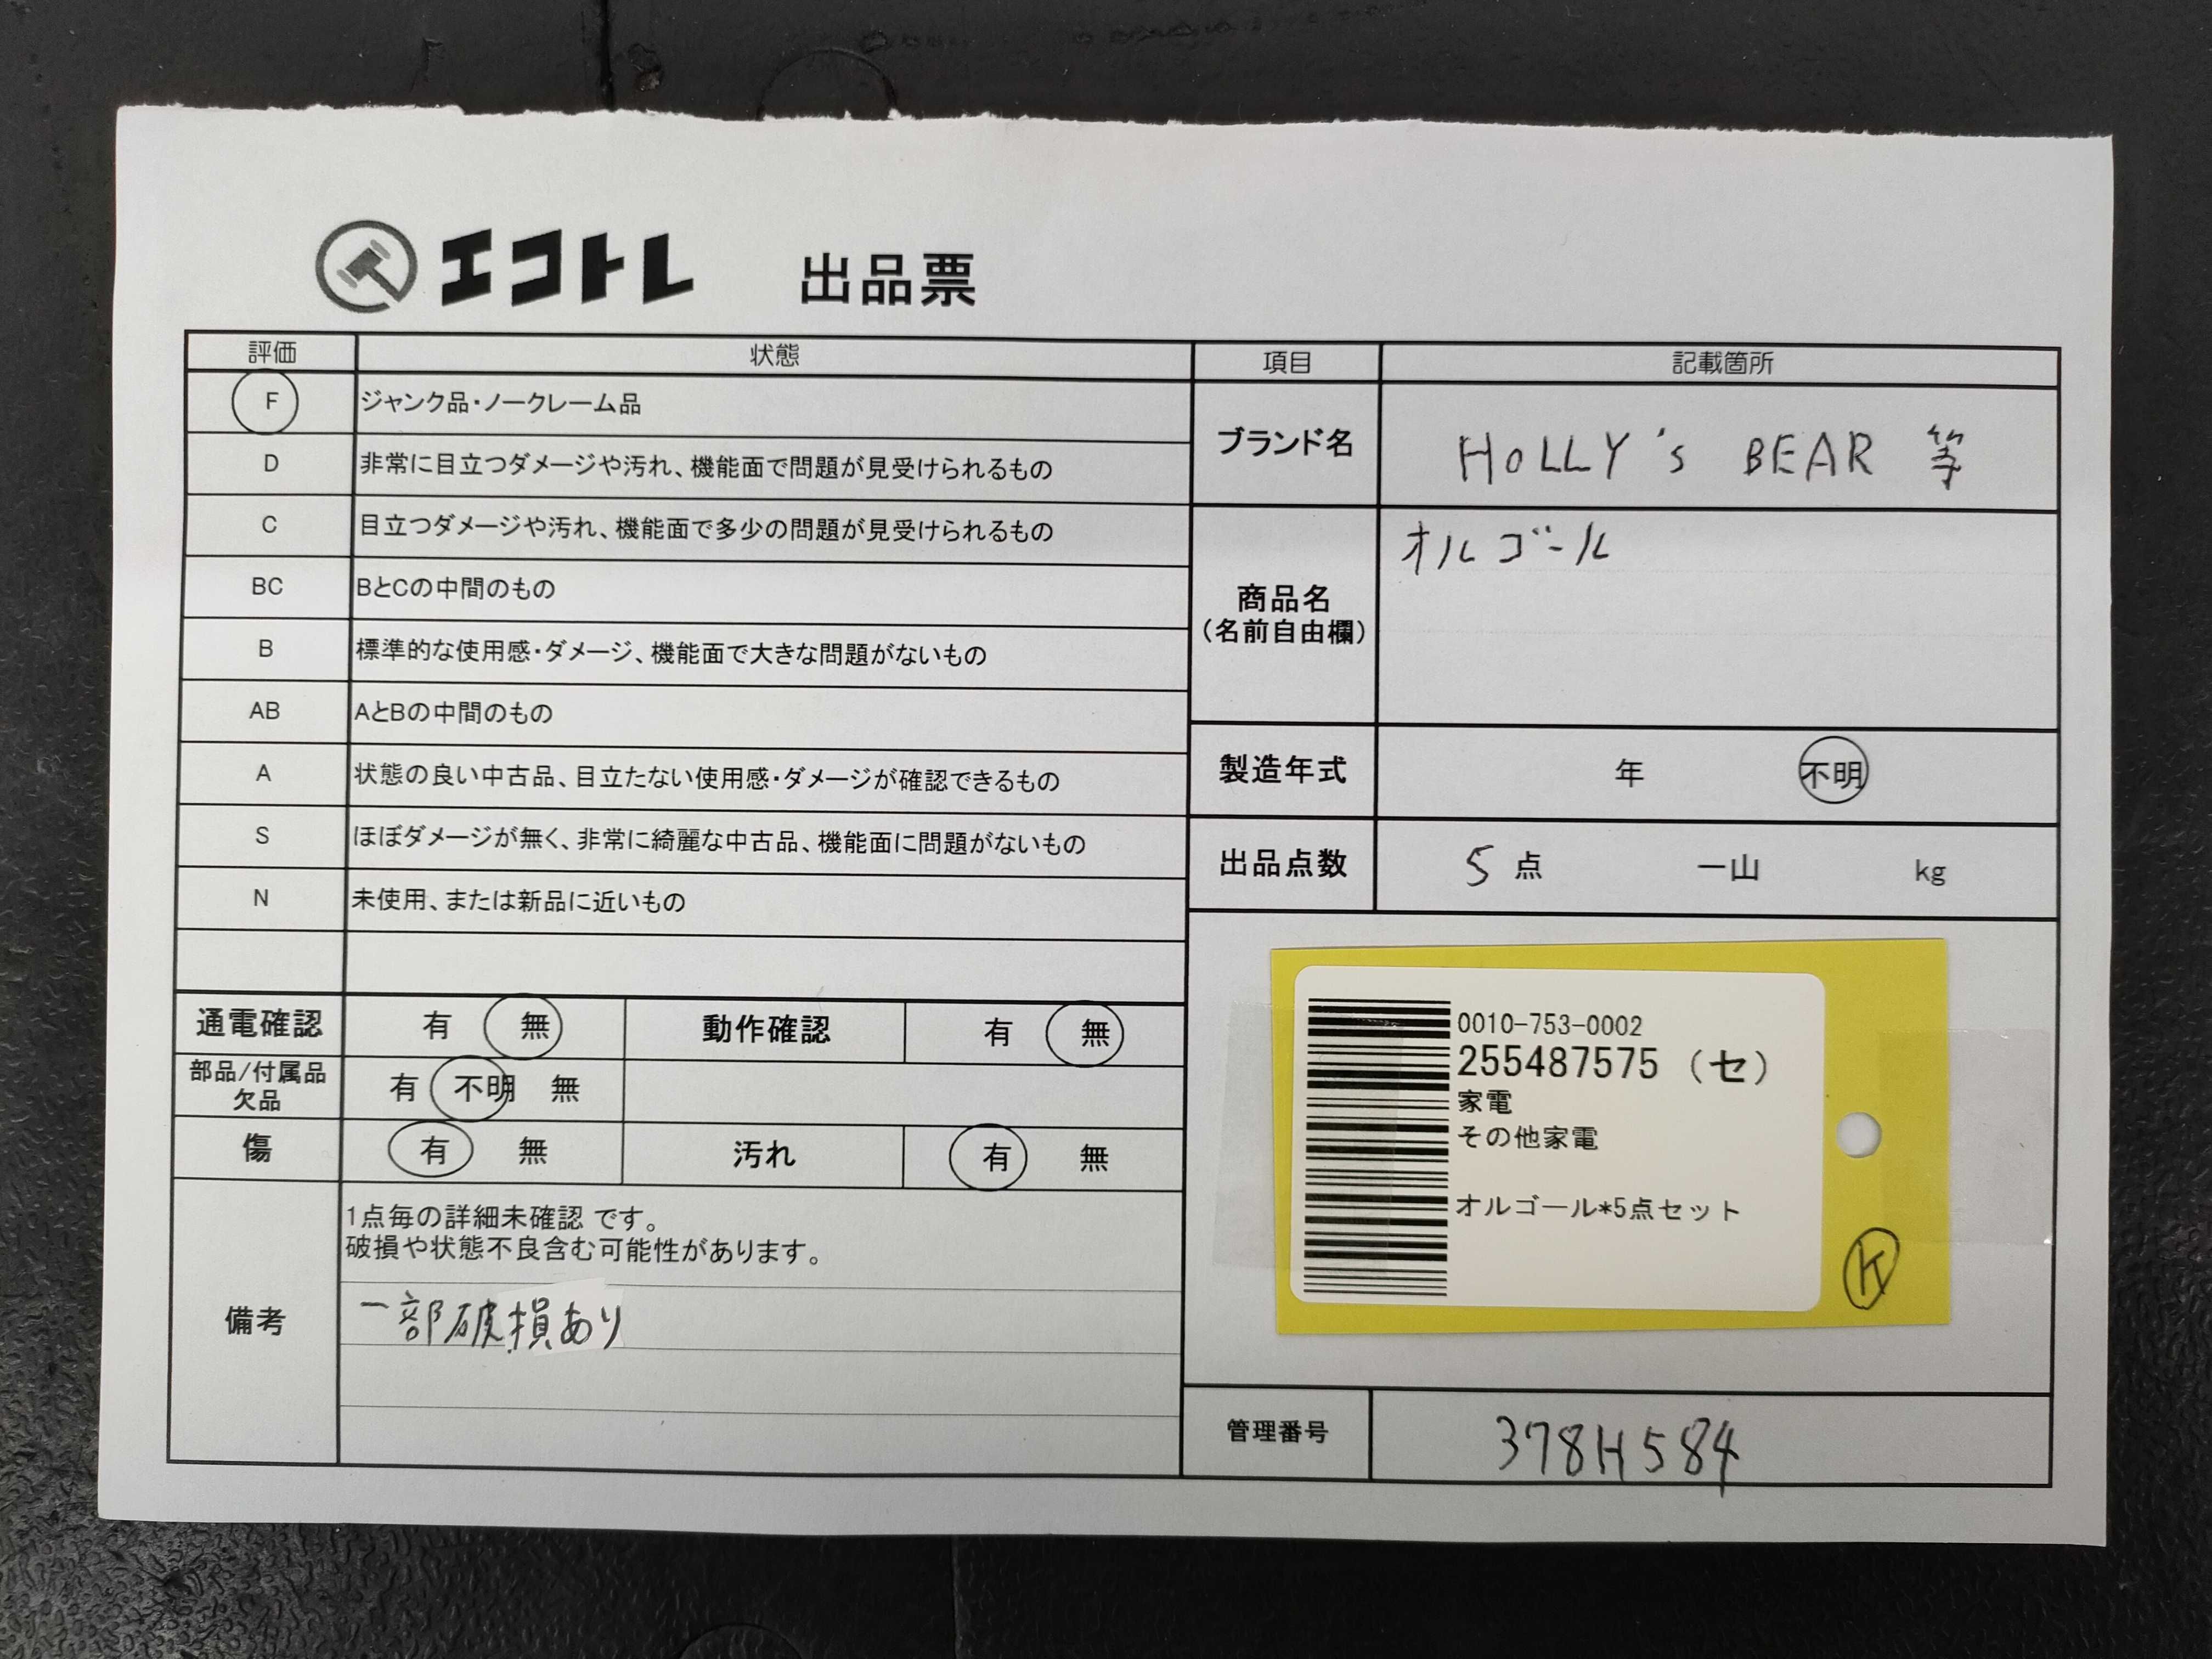 エコトレ 出品票
評価 状態
F ジャンク品・ノークレーム品
D 非常に目立つダメージや汚れ、機能面で問題が見受けられるもの
C 目立つダメージや汚れ、機能面で多少の問題が見受けられるもの
BC BとCの中間のもの
B 標準的な使用感・ダメージ、機能面で大きな問題がないもの
AB AとBの中間のもの
A 状態の良い中古品、目立たない使用感・ダメージが確認できるもの
S ほぼダメージが無く、非常に綺麗な中古品、機能面に問題がないもの
N 未使用、または新品に近いもの
通電確認 有 無 動作確認 有 無
部品/付属品
欠品 有 不明 無
傷 有 無 汚れ 有 無
備考
1点毎の詳細未確認 です。
破損や状態不良含む可能性があります。
一部破損あり
項目 記載箇所
ブランド名 HOLLY's BEAR 等
商品名
(名前自由欄)
オルゴール
製造年式 年 不明
出品点数 5 点 一山 kg
0010-753-0002
255487575 (セ)
家電
その他家電
オルゴール*5点セット
K
管理番号 378H584